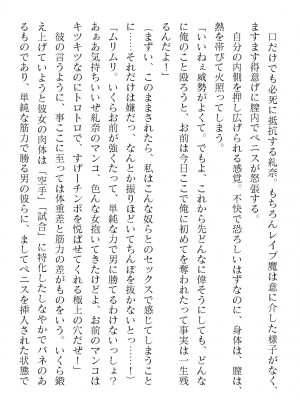 口だけでも必死に抵抗する紀奈。もちろんレイプ魔は意に介した様子がなく、
ますます得意げに膣内でペニスが怒張する。
　自分の内側を押し広げられる感覚。不快で恐ろしいはずなのに、身体は、膣は、
熱を帯びて火照ってしまう。
「いいねぇ威勢がよくて。でもよ、これから先どんなに偉そうにしても、どんな
に俺のこと殴ろうと、お前は今日ここで俺に初めてを奪われたって事実は一生残
るんだよ！」
（まずい、このままされたら、私はこんな奴らとのセックスで感じてしまうこと
に……それだけは嫌だっ、なんとか振りほどいてちんぽを抜かないとっ……！）
「ムリムリ。いくらお前が強くたって、単純な力で男に勝てるわけないっしょ？
あぁあ気持ちいいぜ紀奈のマンコ、色んな女抱いてきたけどよ、お前のマンコは
キツキツなのにトロトロで、すげーチンポを悦ばせてくれる極上の穴だぜ！」
　彼の言うように、事ここに至っては体重差と筋力の差がものをいう。いくら鍛
え上げていようと彼女の肉体は「空手」「試合」に特化したしなやかでバネのあ
るものであり、単純な筋力で男の彼らに、ましてペニスを挿入された状態で